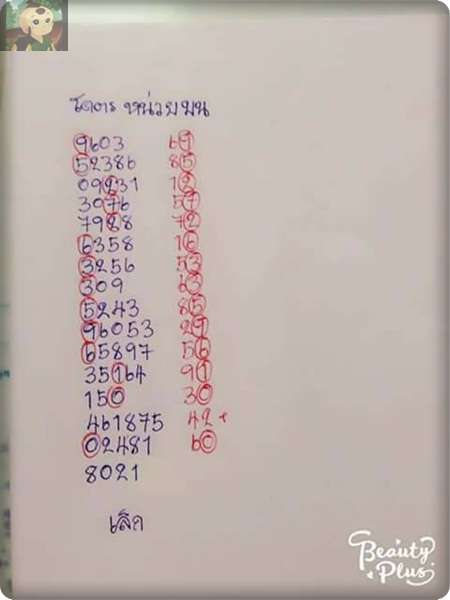 โคตร หน่วยบน
9603 69
52386 85
09231 12
3076 57
7928 72
6358 16
3256 53
309 63
5243 85
96053 29
65897 56
35164 91
150 30
461875 42+
02481 60
8021
Beauty
Plus